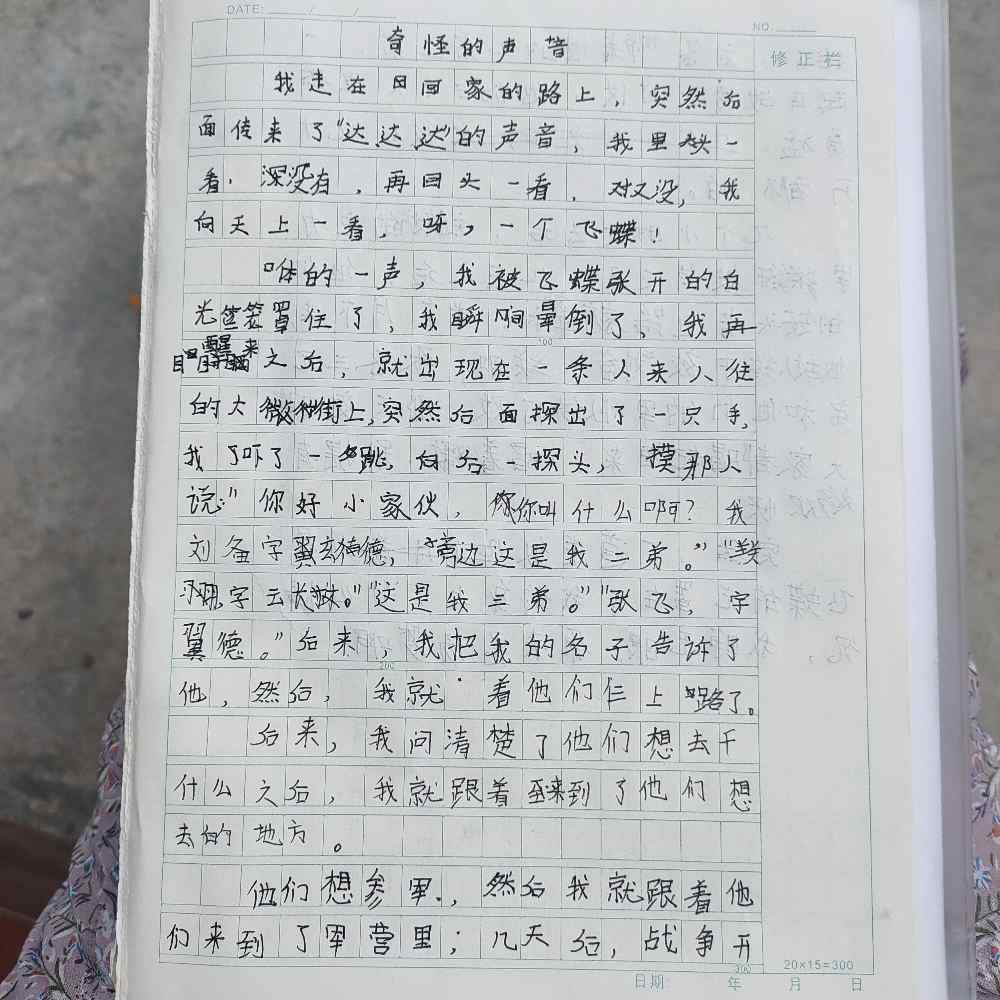 DATE: / /
NO.
奇怪的声音
修正栏
我走在回家的路上，突然后
面传来了“达达达”的声音，我里头一
看，没有，再回头一看，又没，我
向天上一看，呀，一个飞蝶！
的一声，我被飞蝶张开的白
光笼罩住了，我瞬间晕倒了，我再
醒来之后，就出现在一条人来人往
的大街上，突然后面探出了一只手，
我吓了一跳，向后一探头，摸那人
说：“你好小家伙，你叫什么啊？我
刘备字玄德，旁边这是我二弟。”“关
羽，字云长。”“这是我三弟。”“张飞，字
翼德。”后来，我把我的名子告诉了
200
他，然后，我就着他们仨上路了。
后来，我问清楚了他们想去干
什么之后，我就跟着来到了他们想
去的地方。
他们想参军，然后我就跟着他
们来到了军营里；几天后，战争开
300
20×15=300
日期: 年 月 日